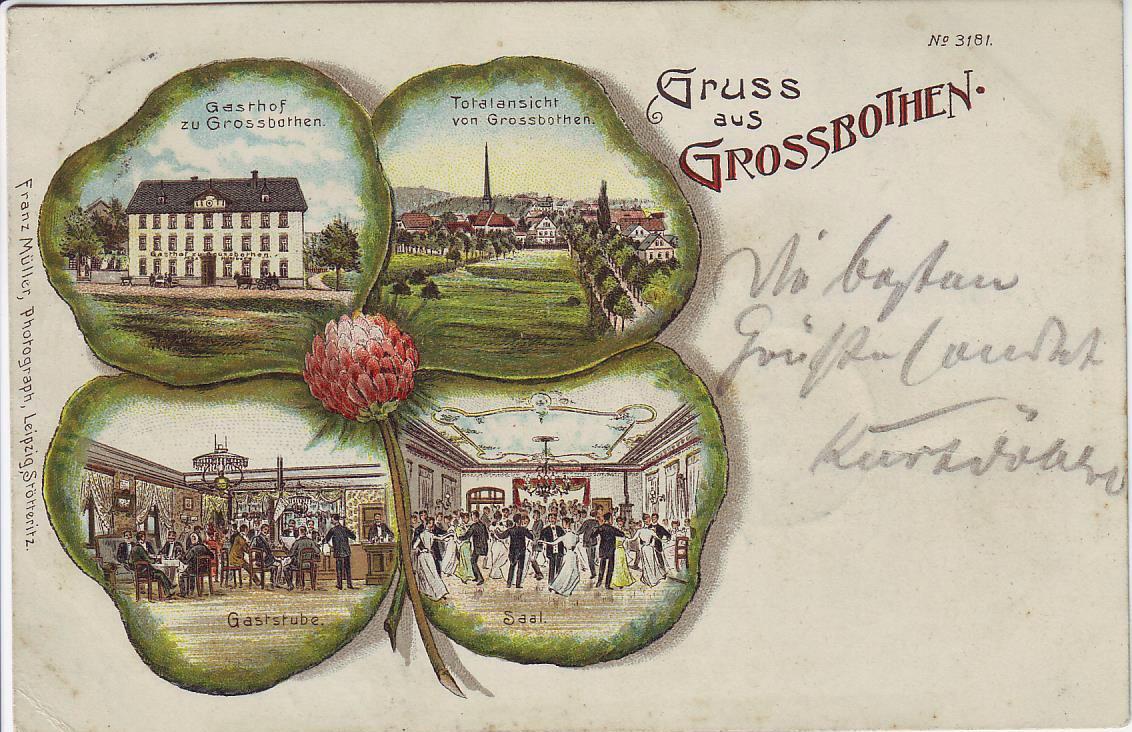 No 3181.
Gruss
aus
GROSSBOTHEN.
Gasthof
zu Grossbothen.
Totalansicht
von Grossbothen.
Gasthof Grossbothen.
Gaststube.
Saal.
Franz Müller, Photograph, Leipzig, Stötteritz.
Die besten
Grüße sendet
Kurt